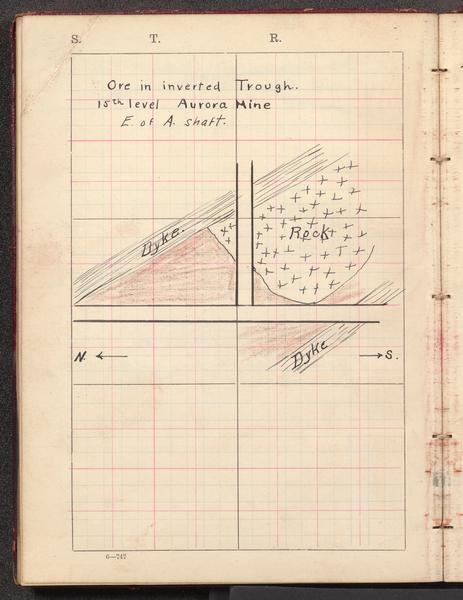 S. T. R.
Ore in inverted Trough.
15th level Aurora Mine
E. of A. shaft.
Dyke.
Rock
N. ←
Dyke
→ S.
6—747